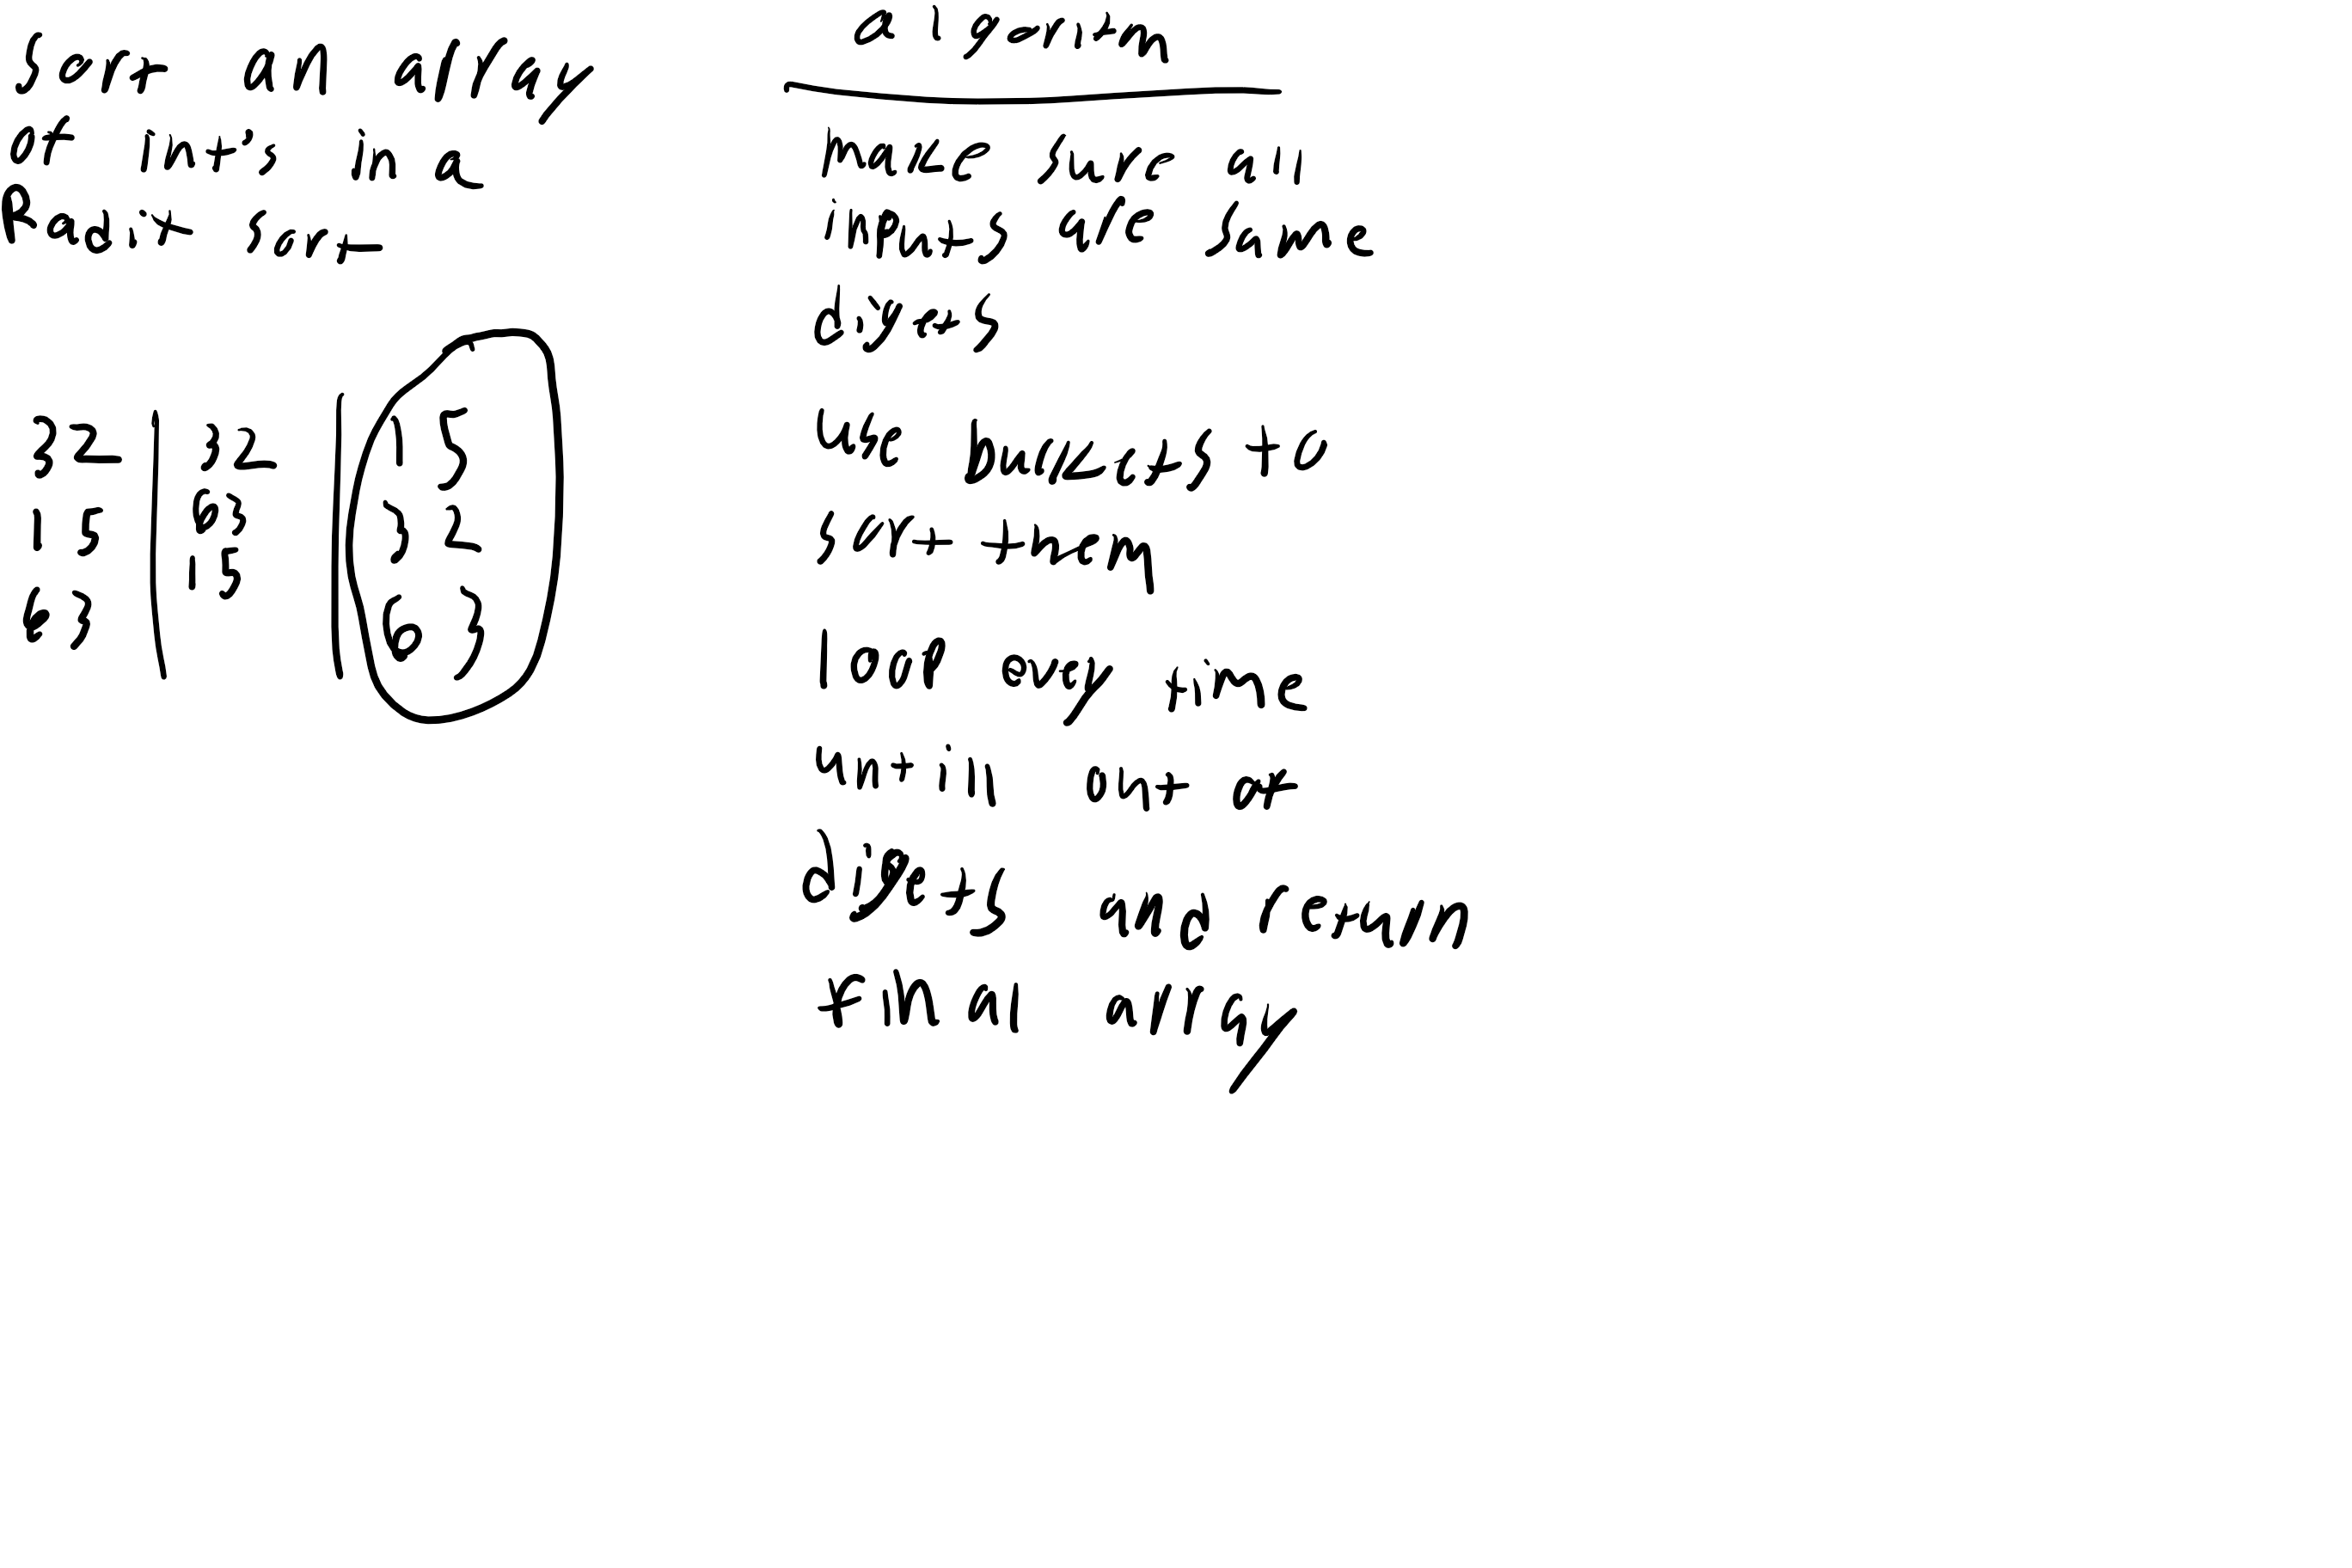 Sort an array
of int's in a
Radix sort
32 | 32 | 15
15 | 63 | 32
63 | 15 | 63
algoritm
make sure all
inputs are same
digets
use buckets to
sort them
loop evey time
untill out of
digets and return
final array